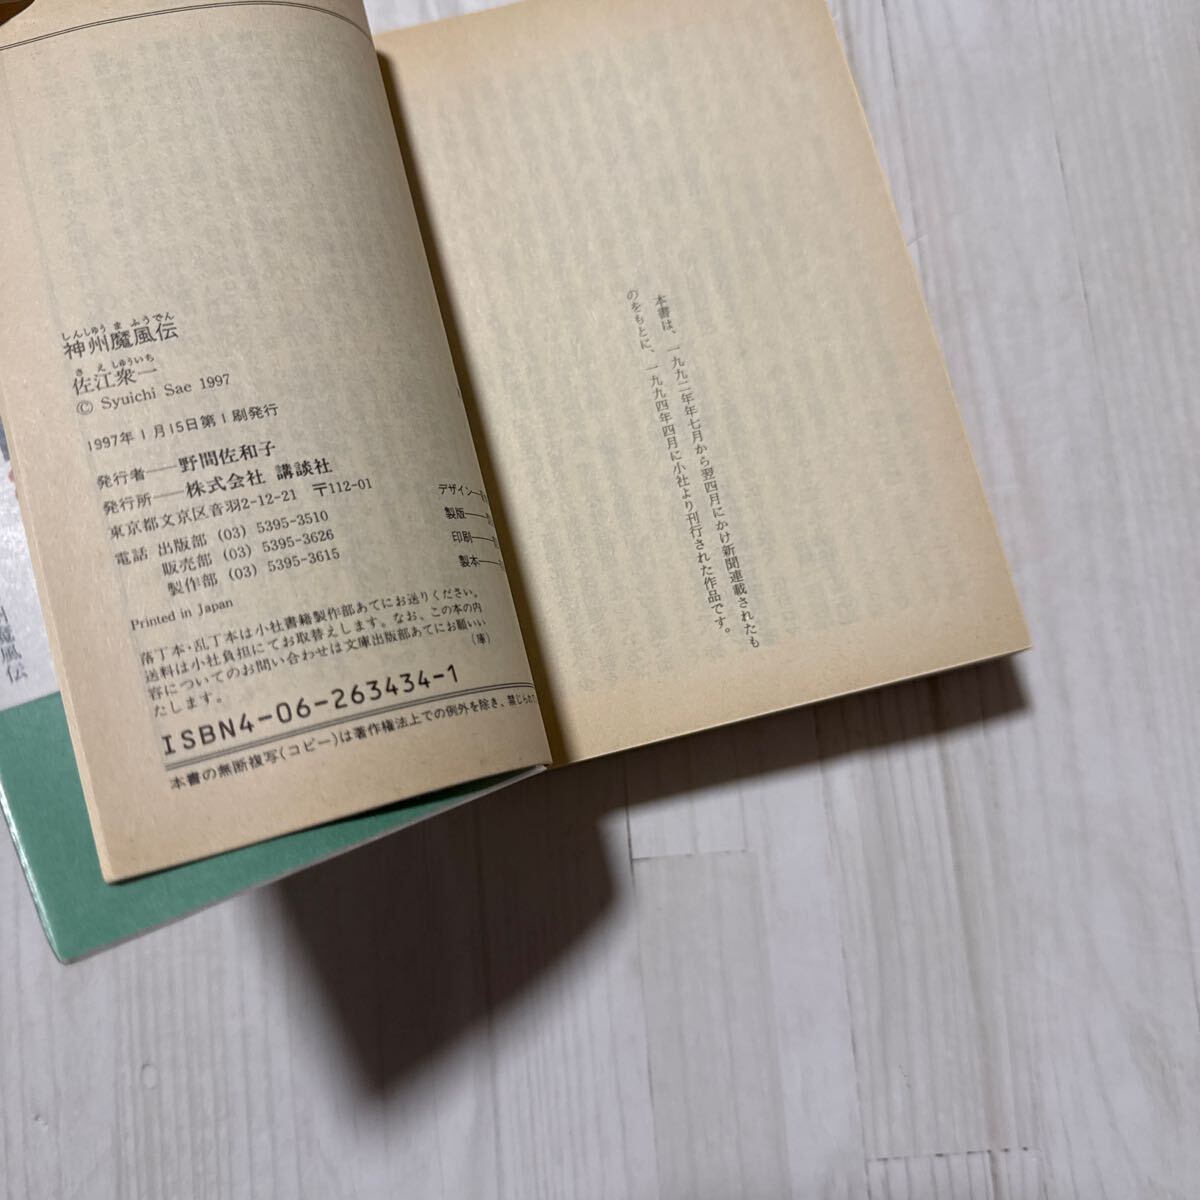 しんしゅう ま ふうでん
神州魔風伝
さ え しゅういち
佐江衆一
© Syuichi Sae 1997
1997年1月15日第1刷発行
発行者――野間佐和子
発行所――株式会社 講談社
東京都文京区音羽2-12-21 〒112-01
電話 出版部 (03) 5395-3510
販売部 (03) 5395-3626
製作部 (03) 5395-3615
Printed in Japan
デザイン―
製版―
印刷―
製本―
落丁本・乱丁本は小社書籍製作部あてにお送りください。
送料は小社負担にてお取替えします。なお、この本の内
容についてのお問い合わせは文庫出版部あてにお願いい
たします。
(庫)
ISBN4-06-263434-1
本書の無断複写(コピー)は著作権法上での例外を除き、禁じられて
本書は、一九九二年七月から翌四月にかけ新聞連載されたも
のをもとに、一九九四年四月に小社より刊行された作品です。
魔風伝